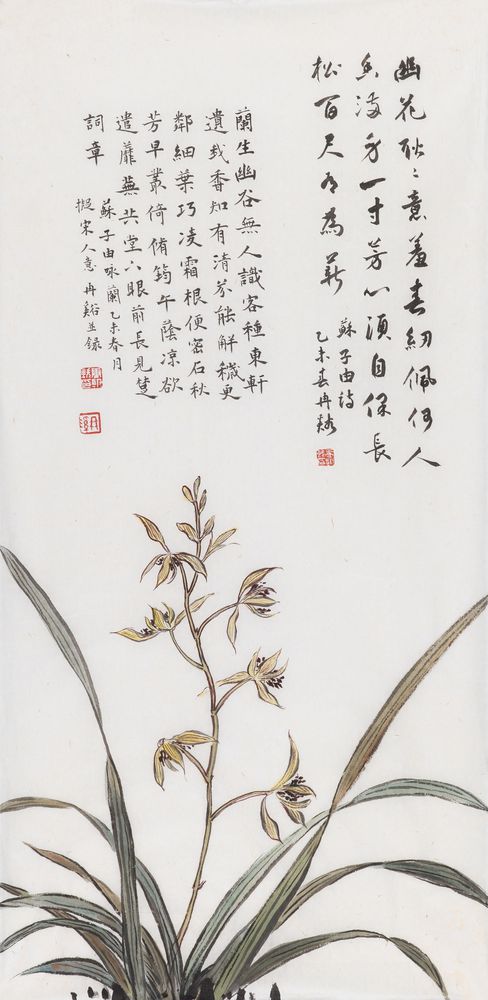 幽花耿〻意羞春紉佩何人
香滿身一寸芳心須自保長
松百尺有為薪
蘇子由詩
乙未春冉谿
蘭生幽谷無人識客種東軒
遺我香知有清芬能解穢更
憐細葉巧凌霜根便密石秋
芳早叢倚脩筠午蔭涼欲
遣蘼蕪共堂下眼前長見楚
詞章
蘇子由咏蘭乙未春月
擬宋人意冉谿並錄